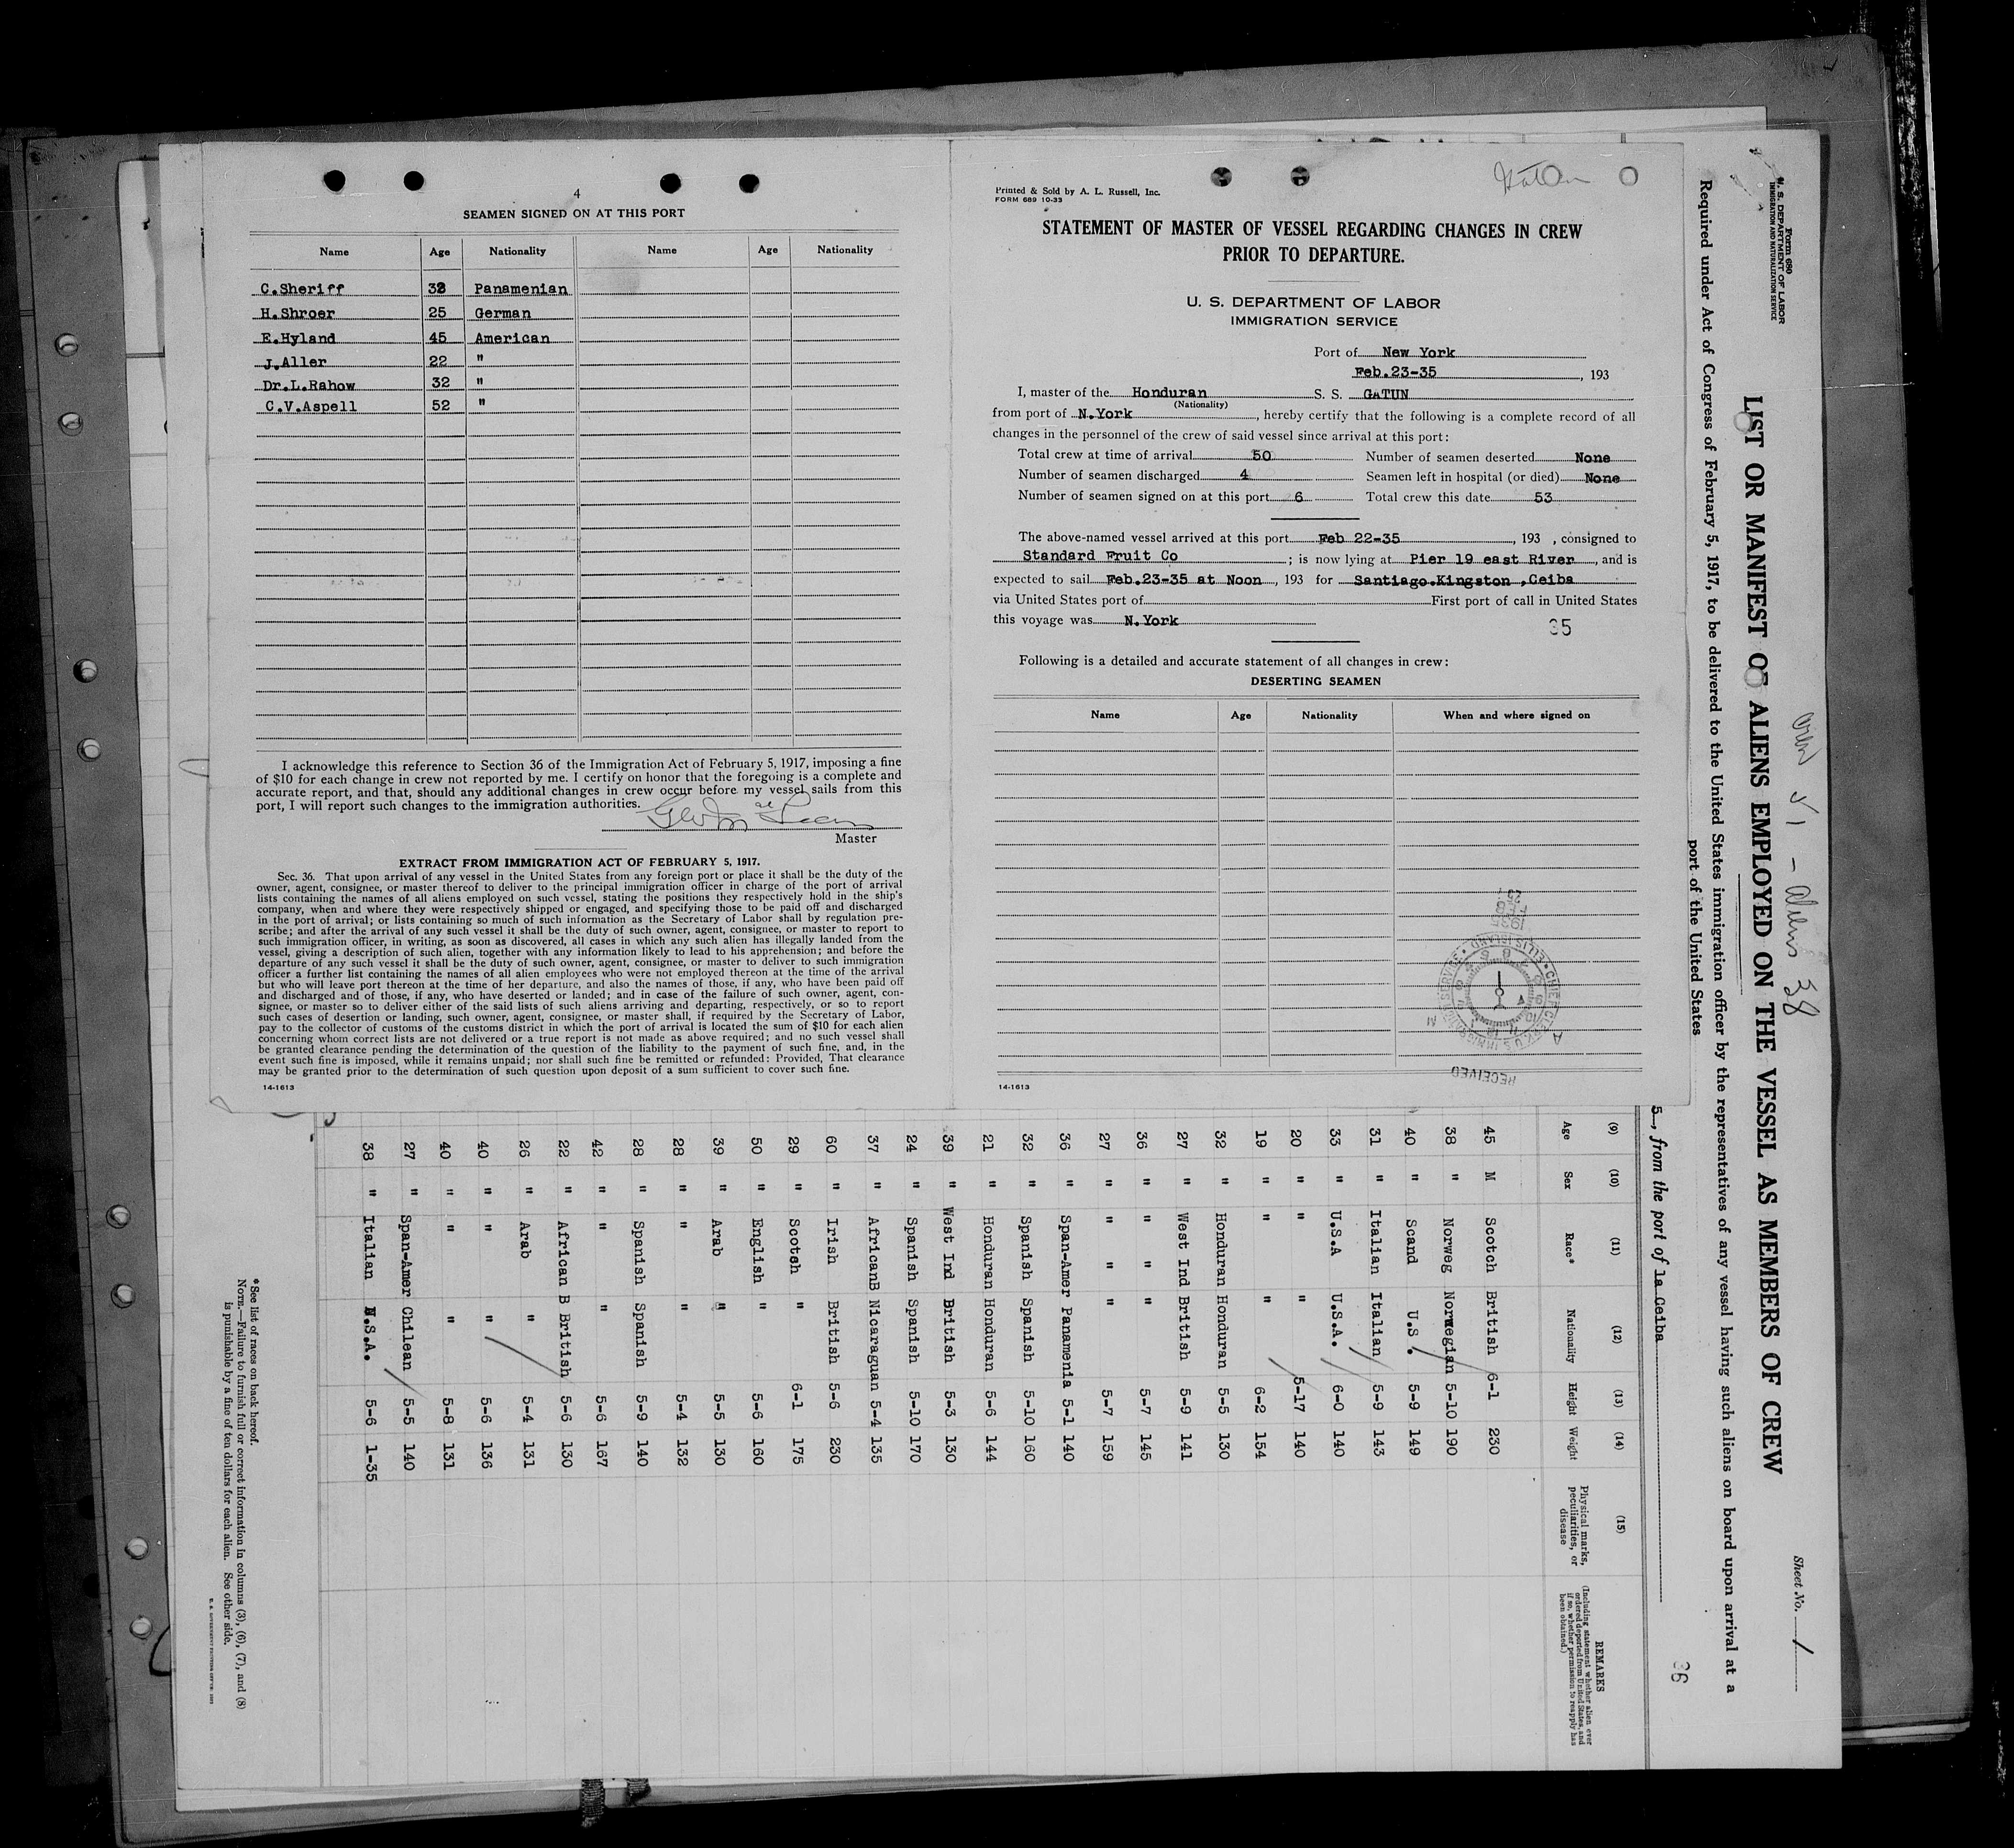 4
SEAMEN SIGNED ON AT THIS PORT
Name Age Nationality Name Age Nationality
C.Sheriff 38 Panamenian
H.Shroer 25 German
E.Hyland 45 American
J.Aller 22 "
Dr.L.Rahow 32 "
C.V.Aspell 52 "
I acknowledge this reference to Section 36 of the Immigration Act of February 5, 1917, imposing a fine
of $10 for each change in crew not reported by me. I certify on honor that the foregoing is a complete and
accurate report, and that, should any additional changes in crew occur before my vessel sails from this
port, I will report such changes to the immigration authorities.
Master
EXTRACT FROM IMMIGRATION ACT OF FEBRUARY 5, 1917.
Sec. 36. That upon arrival of any vessel in the United States from any foreign port or place it shall be the duty of the
owner, agent, consignee, or master thereof to deliver to the principal immigration officer in charge of the port of arrival
lists containing the names of all aliens employed on such vessel, stating the positions they respectively hold in the ship's
company, when and where they were respectively shipped or engaged, and specifying those to be paid off and discharged
in the port of arrival; or lists containing so much of such information as the Secretary of Labor shall by regulation pre-
scribe; and after the arrival of any such vessel it shall be the duty of such owner, agent, consignee, or master to report to
such immigration officer, in writing, as soon as discovered, all cases in which any such alien has illegally landed from the
vessel, giving a description of such alien, together with any information likely to lead to his apprehension; and before the
departure of any such vessel it shall be the duty of such owner, agent, consignee, or master to deliver to such immigration
officer a further list containing the names of all alien employees who were not employed thereon at the time of the arrival
but who will leave port thereon at the time of her departure, and also the names of those, if any, who have been paid off
and discharged and of those, if any, who have deserted or landed; and in case of the failure of such owner, agent, con-
signee, or master so to deliver either of the said lists of such aliens arriving and departing, respectively, or so to report
such cases of desertion or landing, such owner, agent, consignee, or master shall, if required by the Secretary of Labor,
pay to the collector of customs of the customs district in which the port of arrival is located the sum of $10 for each alien
concerning whom correct lists are not delivered or a true report is not made as above required; and no such vessel shall
be granted clearance pending the determination of the question of the liability to the payment of such fine, and, in the
event such fine is imposed, while it remains unpaid; nor shall such fine be remitted or refunded: Provided, That clearance
may be granted prior to the determination of such question upon deposit of a sum sufficient to cover such fine.
14-1613
Gatun
Printed & Sold by A. L. Russell, Inc.
FORM 689 10-33
STATEMENT OF MASTER OF VESSEL REGARDING CHANGES IN CREW
PRIOR TO DEPARTURE.
U. S. DEPARTMENT OF LABOR
IMMIGRATION SERVICE
Port of New York
Feb.23-35, 193
I, master of the Honduran S. S. GATUN
(Nationality)
from port of N.York, hereby certify that the following is a complete record of all
changes in the personnel of the crew of said vessel since arrival at this port:
Total crew at time of arrival 50 Number of seamen deserted None
Number of seamen discharged 4 Seamen left in hospital (or died) None
Number of seamen signed on at this port 6 Total crew this date 53
The above-named vessel arrived at this port Feb 22-35, 193 , consigned to
Standard Fruit Co ; is now lying at Pier 19 east River, and is
expected to sail Feb.23-35 at Noon, 193 for Santiago.Kingston ,Ceiba
via United States port of First port of call in United States
this voyage was N.York
35
Following is a detailed and accurate statement of all changes in crew:
DESERTING SEAMEN
Name Age Nationality When and where signed on
RECEIVED
14-1613
Form 680
U. S. DEPARTMENT OF LABOR
IMMIGRATION AND NATURALIZATION SERVICE
Sheet No. 1
crew 51 - aliens 38
LIST OR MANIFEST OF ALIENS EMPLOYED ON THE VESSEL AS MEMBERS OF CREW
Required under Act of Congress of February 5, 1917, to be delivered to the United States immigration officer by the representatives of any vessel having such aliens on board upon arrival at a
port of the United States
36
5, from the port of la Ceiba
(9) (10) (11) (12) (13) (14) (15)
Age Sex Race* Nationality Height Weight Physical marks, peculiarities, or disease REMARKS
(Including statement whether alien ever ordered deported from United States, and if so, whether permission to reapply has been obtained.)
45 M Scotch British 6-1 230
38 " Norweg Norwegian 5-10 190
40 " Scand U.S . 5-9 149
31 " Italian Italian 5-9 143
33 " U.S.A U.S.A. 6-0 140
20 " " " 5-17 140
19 " " " 6-2 154
32 " Honduran Honduran 5-5 130
27 " West Ind British 5-9 141
36 " " " 5-7 145
27 " " " 5-7 159
36 " Span-Amer Panamenia 5-1 140
32 " Spanish Spanish 5-10 160
21 " Honduran Honduran 5-6 144
39 " West Ind British 5-3 130
24 " Spanish Spanish 5-10 170
37 " AfricanB Nicaraguan 5-4 135
60 " Irish British 5-6 230
29 " Scotch " 6-1 175
50 " English " 5-6 160
39 " Arab " 5-5 130
28 " " " 5-4 132
28 " Spanish Spanish 5-9 140
42 " " " 5-6 167
22 " African B British 5-6 130
26 " Arab " 5-4 131
40 " " " 5-6 136
40 " " " 5-8 131
27 " Span-Amer Chilean 5-5 140
38 " Italian U.S.A. 5-6 1-35
*See list of races on back hereof.
NOTE.—Failure to furnish full or correct information in columns (3), (6), (7), and (8)
is punishable by a fine of ten dollars for each alien. See other side.